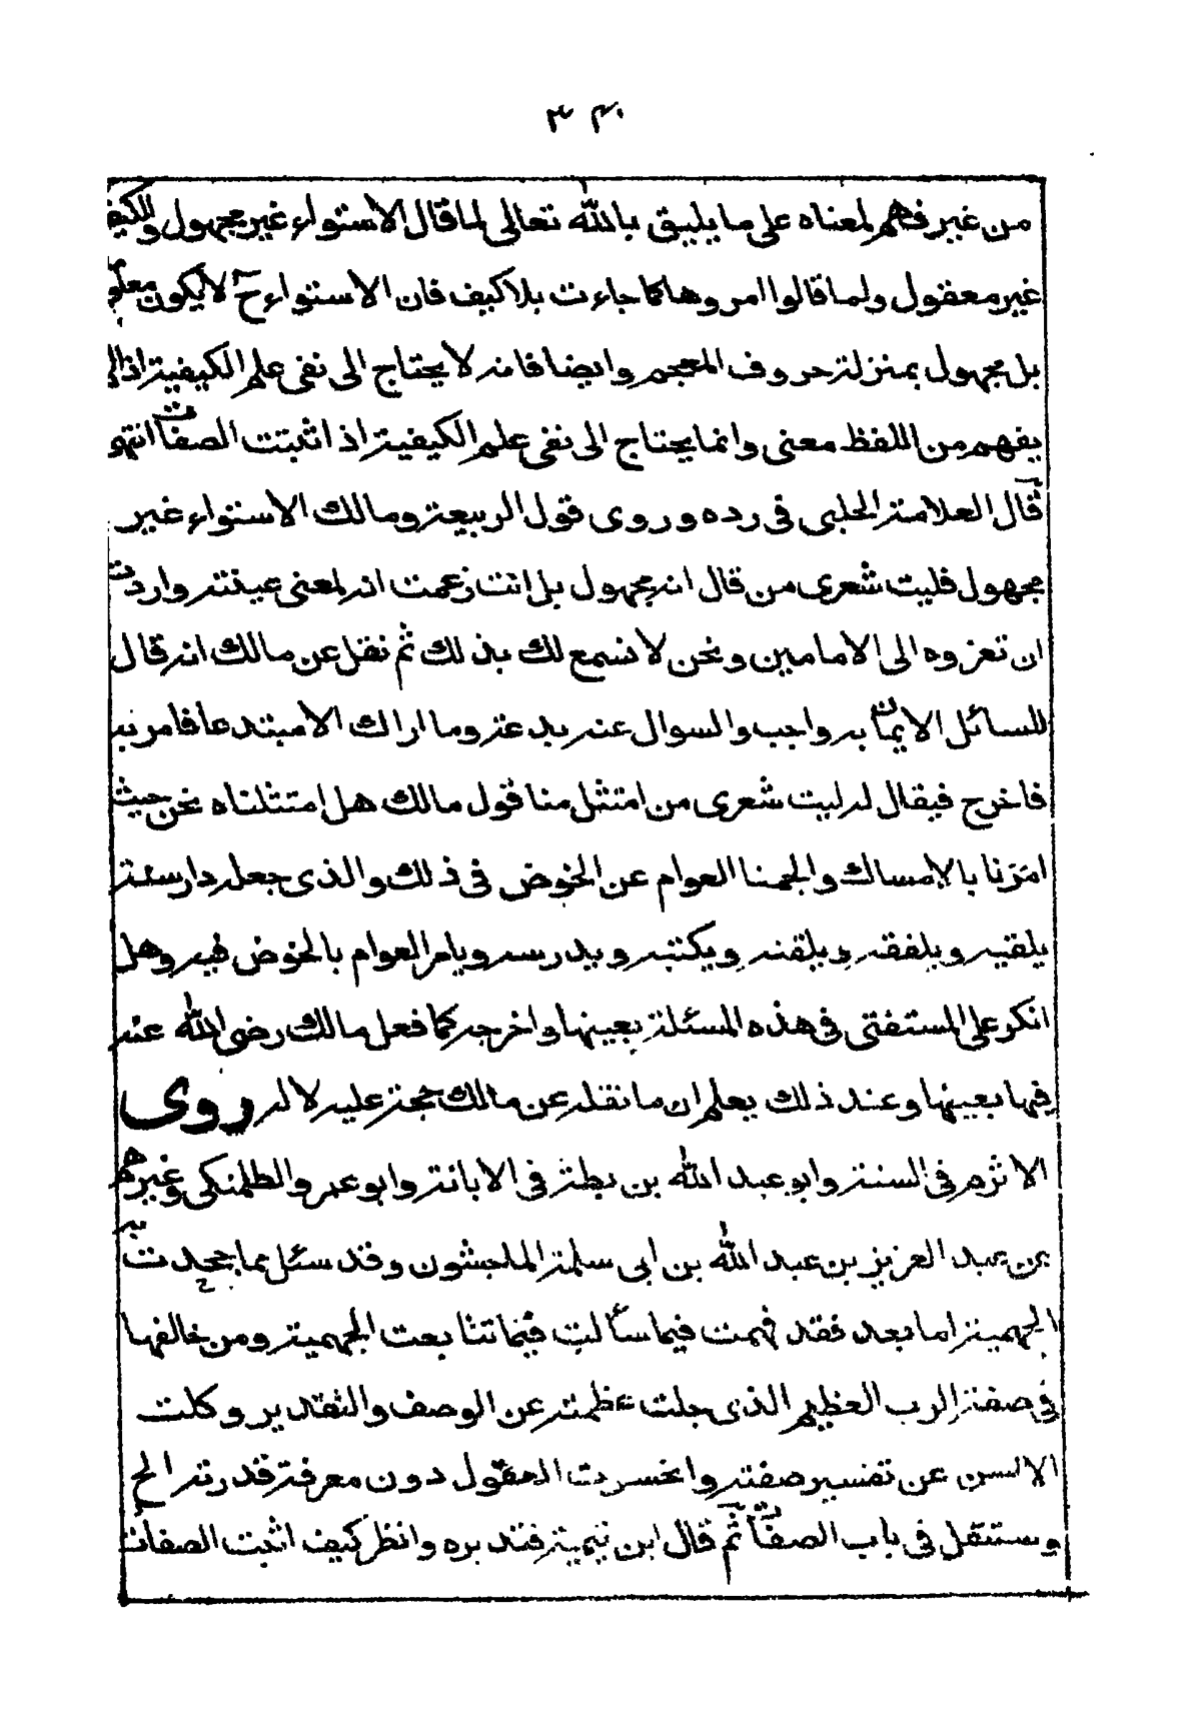 ٣٤٠
من غير فهم لمعناه على ما يليق بالله تعالى لما قال الاستواء غير مجهول والكيف
غير معقول ولما قالوا امروها كما جاءت بلا كيف فان الاستواء ح لا يكون معلوما
بل مجهول بمنزلة حروف المعجم وايضا فانه لا يحتاج الى نفى علم الكيفية اذا لم
يفهم من اللفظ معنى وانما يحتاج الى نفى علم الكيفية اذ اثبتت الصفات انتهى
قال العلامة الحلبى فى رده وروى قول الربيعة ومالك الاستواء غير
مجهول فليت شعرى من قال انه مجهول بل انت زعمت انه لمعنى عينته واردت
ان تعزوه الى الامامين ونحن لا نسمع لك بذلك ثم نقل عن مالك انه قال
للسائل الايمان به واجب والسوال عنه بدعة وما اراك الا مبتدعا فامر به
فاخرج فيقال له ليت شعرى من امتثل منا قول مالك هل امتثلناه نحن حيث
امرنا بالامساك والجمنا العوام عن الخوض فى ذلك والذى جعله دارسته
يلقيه ويلفقه ويلقنه ويكتبه ويدرسه ويامر العوام بالخوض فيه وهل
انكر على المستفتى فى هذه المسئلة بعينها واخرجه كما فعل مالك رضى الله عنه
فيها بعينها وعند ذلك يعلم ان ما نقله عن مالك حجة عليه لا له روى
الاثرم فى السنة وابو عبد الله بن بطة فى الابانة وابو عمر والطلمنكى وغيرهم
عن عبد العزيز بن عبد الله بن ابى سلمة الماجشون وقد سئل عما جحدت به
الجهمية اما بعد فقد فهمت فيما سألت فيما تتابعت الجهمية ومن خالفها
فى صفة الرب العظيم الذى جلت عظمته عن الوصف والتقدير وكلت
الالسن عن تفسير صفته وانحسرت العقول دون معرفة قدرته الخ
وستنقل فى باب الصفات ثم قال ابن تيمية فتدبره وانظر كيف اثبت الصفات